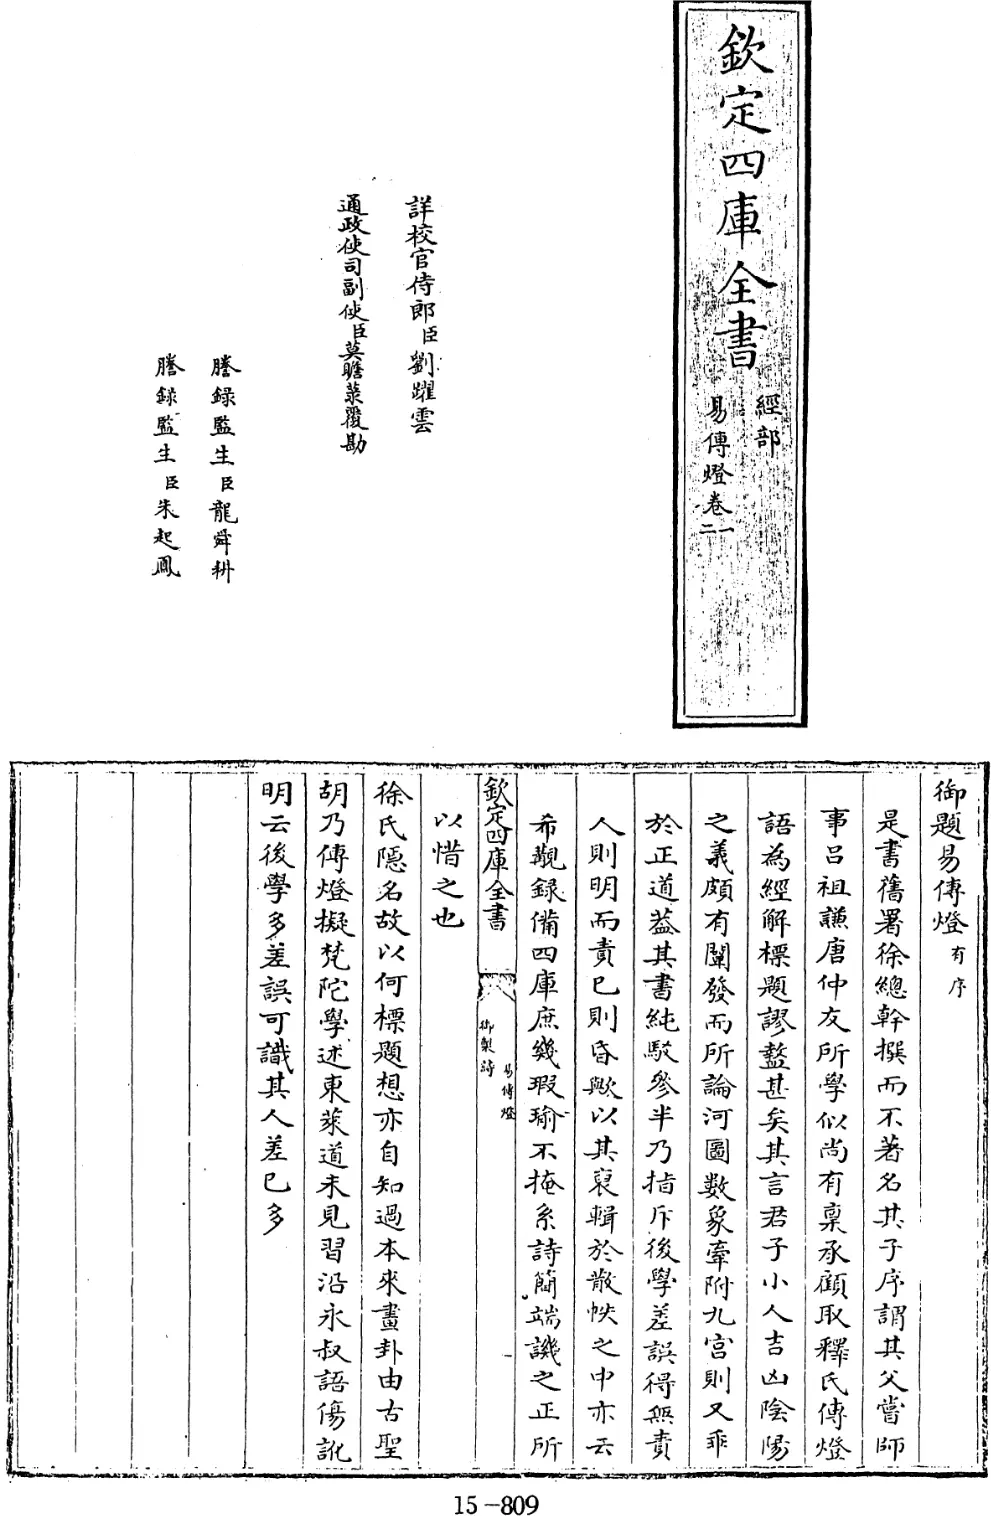 欽定四庫全書
經部
易傳燈卷一
二
詳校官侍郎臣劉躍雲
通政使司副使臣莫瞻菉覆勘
謄錄監生臣龍舜耕
謄錄監生臣朱起鳳
御題易傳燈有序
是書舊署徐總幹撰而不著名其子序謂其父嘗師
事呂祖謙唐仲友所學似尚有稟承顧取釋氏傳燈
語為經解標題謬盭甚矣其言君子小人吉凶陰陽
之義頗有闡發而所論河圖數象牽附九宮則又乖
於正道葢其書純駁參半乃指斥後學差誤得無責
人則明而責已則昏歟以其裒輯於散帙之中亦云
希覯錄備四庫庶幾瑕瑜不掩系詩簡端譏之正所
欽定四庫全書
易傳燈
御製詩
以惜之也
徐氏隱名故以何標題想亦自知過本來畫卦由古聖
胡乃傳燈擬梵陀學述東萊道未見習沿永叔語傷訛
明云後學多差誤可識其人差已多
15-809